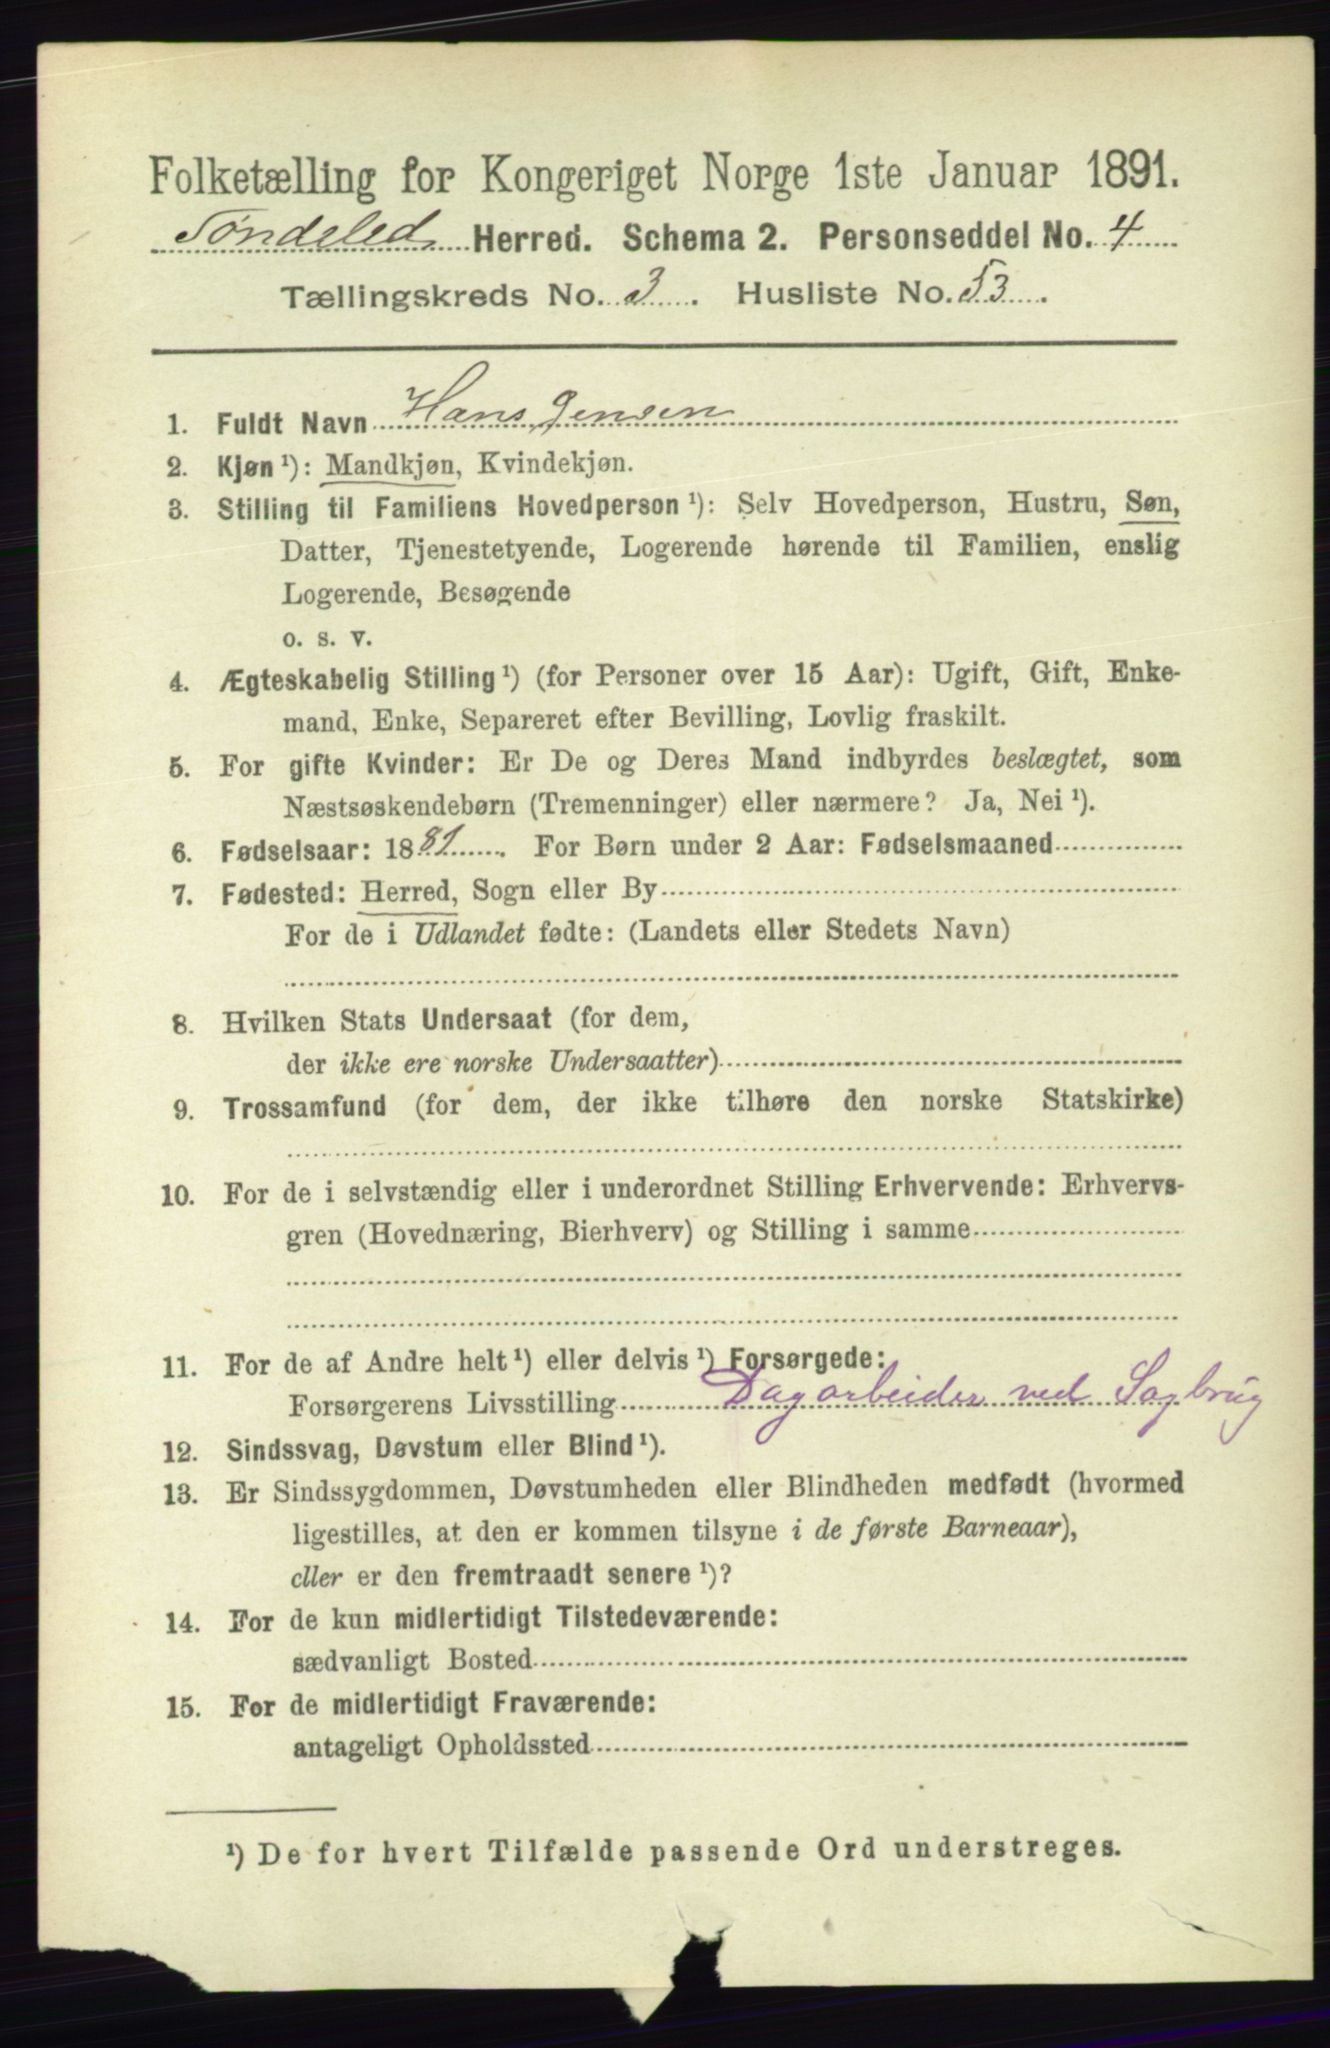 Folketælling for Kongeriget Norge 1ste Januar 1891.
Søndeled Herred. Schema 2. Personseddel No. 4
Tællingskreds No. 3. Husliste No. 53.
1. Fuldt Navn Hans Jensen
2. Kjøn ¹): Mandkjøn, Kvindekjøn.
3. Stilling til Familiens Hovedperson ¹): Selv Hovedperson, Hustru, Søn,
Datter, Tjenestetyende, Logerende hørende til Familien, enslig
Logerende, Besøgende
o. s. v.
4. Ægteskabelig Stilling ¹) (for Personer over 15 Aar): Ugift, Gift, Enke-
mand, Enke, Separeret efter Bevilling, Lovlig fraskilt.
5. For gifte Kvinder: Er De og Deres Mand indbyrdes beslægtet, som
Næstsøskendebørn (Tremenninger) eller nærmere? Ja, Nei ¹).
6. Fødselsaar: 1881. For Børn under 2 Aar: Fødselsmaaned
7. Fødested: Herred, Sogn eller By
For de i Udlandet fødte: (Landets eller Stedets Navn)
8. Hvilken Stats Undersaat (for dem,
der ikke ere norske Undersaatter)
9. Trossamfund (for dem, der ikke tilhøre den norske Statskirke)
10. For de i selvstændig eller i underordnet Stilling Erhvervende: Erhvervs-
gren (Hovednæring, Bierhverv) og Stilling i samme
11. For de af Andre helt ¹) eller delvis ¹) Forsørgede:
Forsørgerens Livsstilling Dagarbeider ved Sagbrug
12. Sindssvag, Døvstum eller Blind ¹).
13. Er Sindssygdommen, Døvstumheden eller Blindheden medfødt (hvormed
ligestilles, at den er kommen tilsyne i de første Barneaar),
eller er den fremtraadt senere ¹)?
14. For de kun midlertidigt Tilstedeværende:
sædvanligt Bosted
15. For de midlertidigt Fraværende:
antageligt Opholdssted
¹) De for hvert Tilfælde passende Ord understreges.